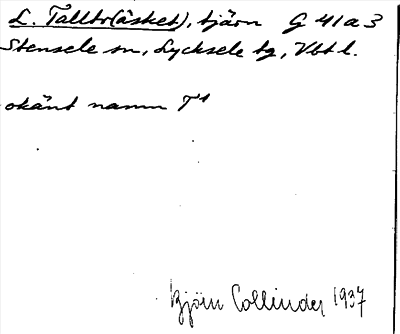 L. Talltr(äsket), tjärn G 41a3
Stensele sn, Lycksele tg, Vbtl.
okänt namn T¹
Björn Collinder 1937